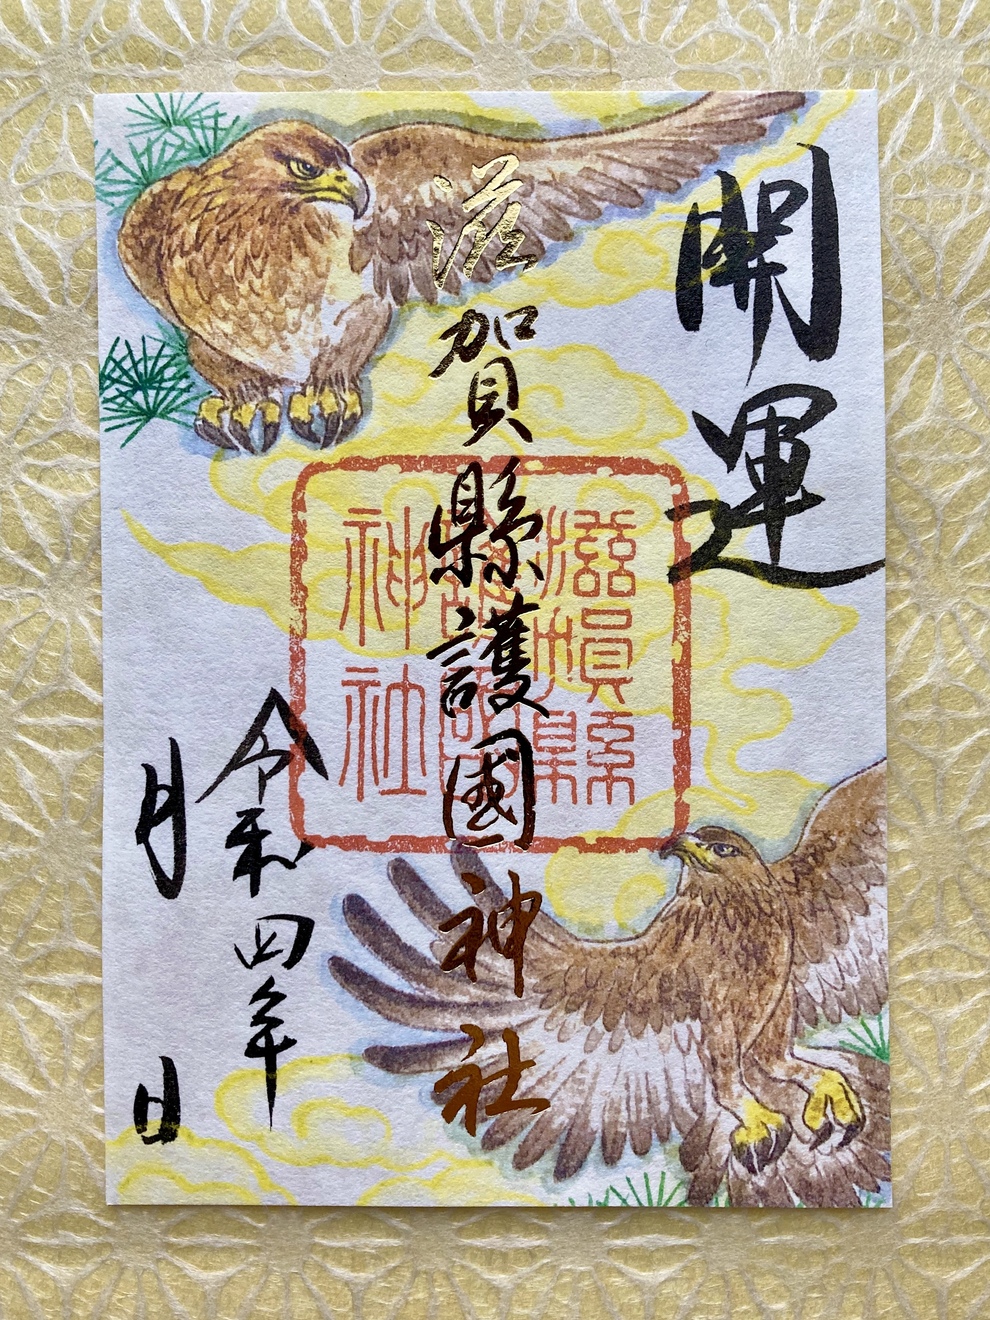 開運
滋賀縣護國神社
滋賀縣
護國
神社
令和四年
月 日